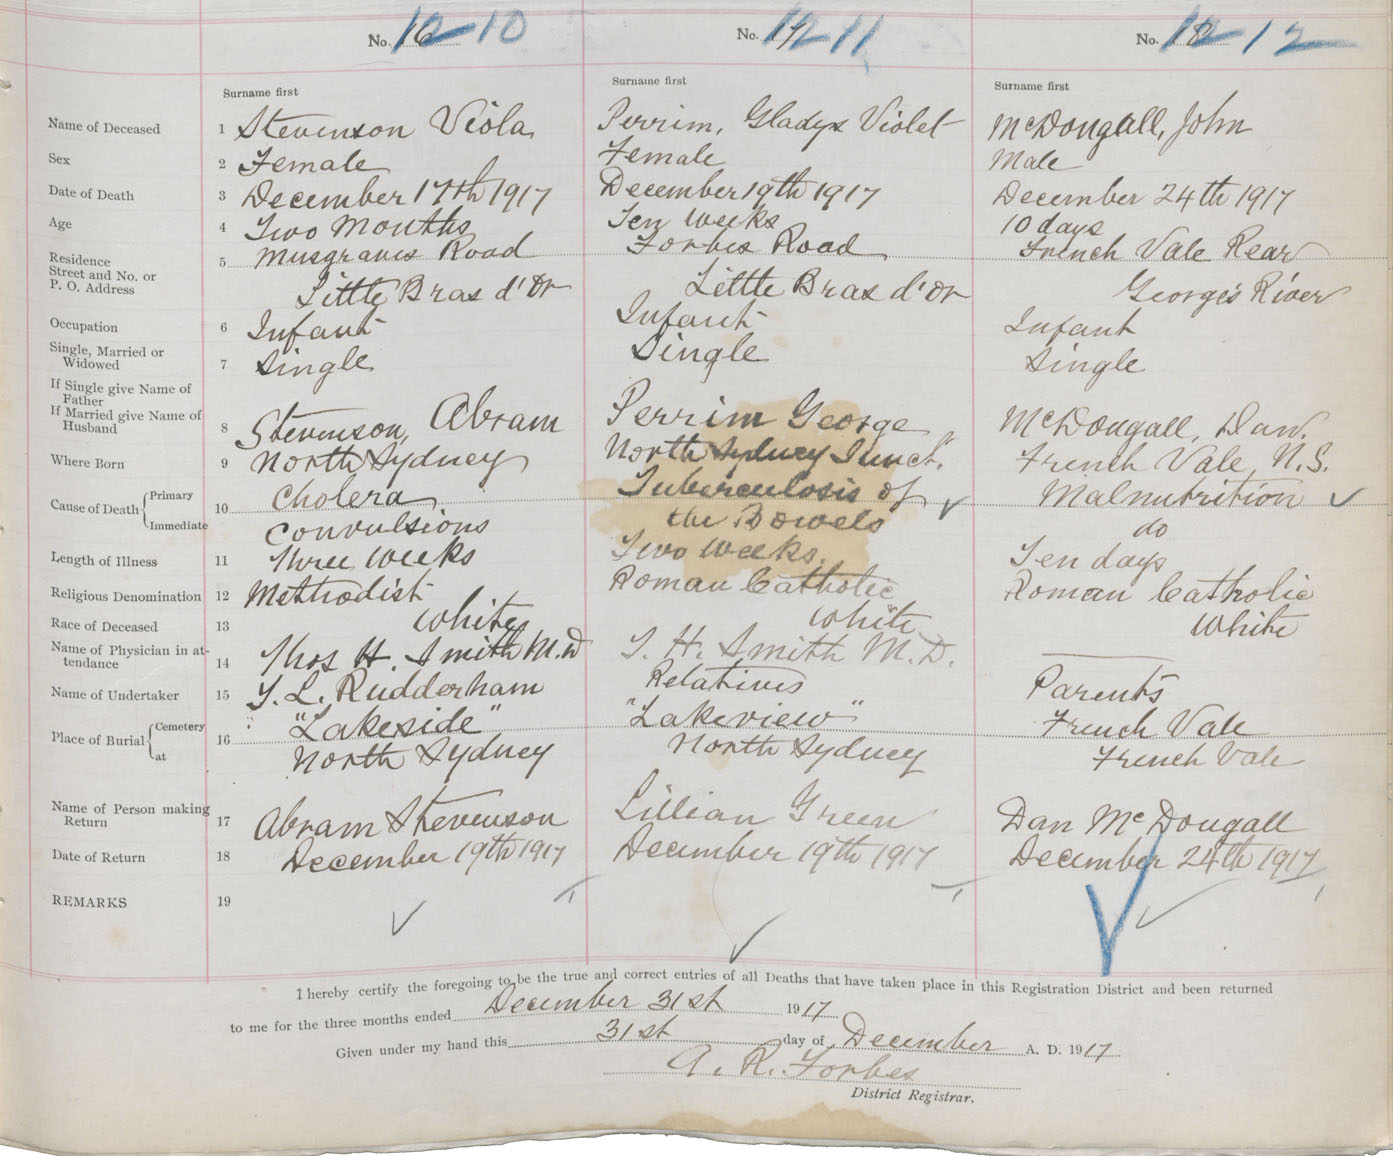 No. 16 12 10
No. 17 12 11
No. 18 12 12
Surname first
Surname first
Surname first
Name of Deceased 1 Stevenson Viola
Perrim, Gladys Violet
McDougall, John
Sex 2 Female
Female
Male
Date of Death 3 December 17th 1917
December 19th 1917
December 24th 1917
Age 4 Two Months
Ten weeks
10 days
Residence
Street and No. or
P. O. Address
5 Musgraves Road
Little Bras d'Or
Forbes Road
Little Bras d'Or
French Vale Rear
George's River
Occupation 6 Infant
Infant
Infant
Single, Married or
Widowed
7 Single
Single
Single
If Single give Name of
Father
If Married give Name of
Husband
8 Stevenson, Abram
Perrim George
McDougall, Dan.
Where Born 9 North Sydney
North Sydney Junct.
French Vale, N.S.
Cause of Death { Primary
Immediate
10 Cholera
Convulsions
Tuberculosis of
the Bowels
Malnutrition
do
Length of Illness 11 Three weeks
Two weeks.
Ten days
Religious Denomination 12 Methodist
Roman Catholic
Roman Catholic
Race of Deceased 13 White
White
White
Name of Physician in at-
tendance
14 Thos H. Smith M.D
T. H. Smith M.D.
Name of Undertaker 15 T. L. Rudderham
Relatives
Parents
Place of Burial { Cemetery
at
16 "Lakeside"
North Sydney
"Lakeview"
North Sydney
French Vale
French Vale
Name of Person making
Return
17 Abram Stevenson
Lillian Green
Dan McDougall
Date of Return 18 December 19th 1917
December 19th 1917
December 24th 1917
REMARKS 19
I hereby certify the foregoing to be the true and correct entries of all Deaths that have taken place in this Registration District and been returned
to me for the three months ended December 31st 1917
Given under my hand this 31st day of December A. D. 1917
A. R. Forbes
District Registrar.